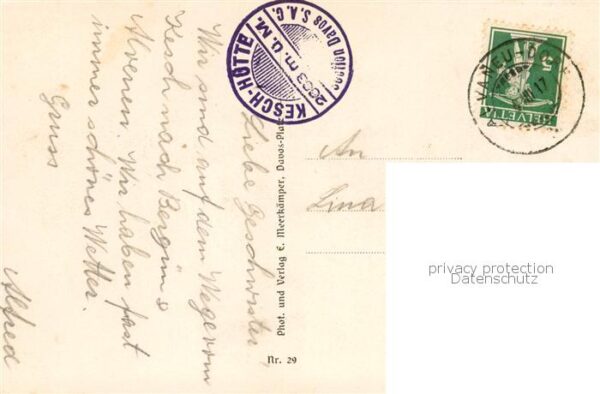 Liebe Geschwister
Wir sind auf dem Wege vom
Kesch nach Bergün &
Alvenen. Wir haben fast
immer schönes Wetter.
Gruss
Alfred
KESCH-HÜTTE
M. Ü. M.
Section Davos S.A.C.
Phot. und Verlag E. Meerkämper, Davos-Platz
Nr. 29
An
Lina
5
HELVETIA
17
privacy protection
Datenschutz